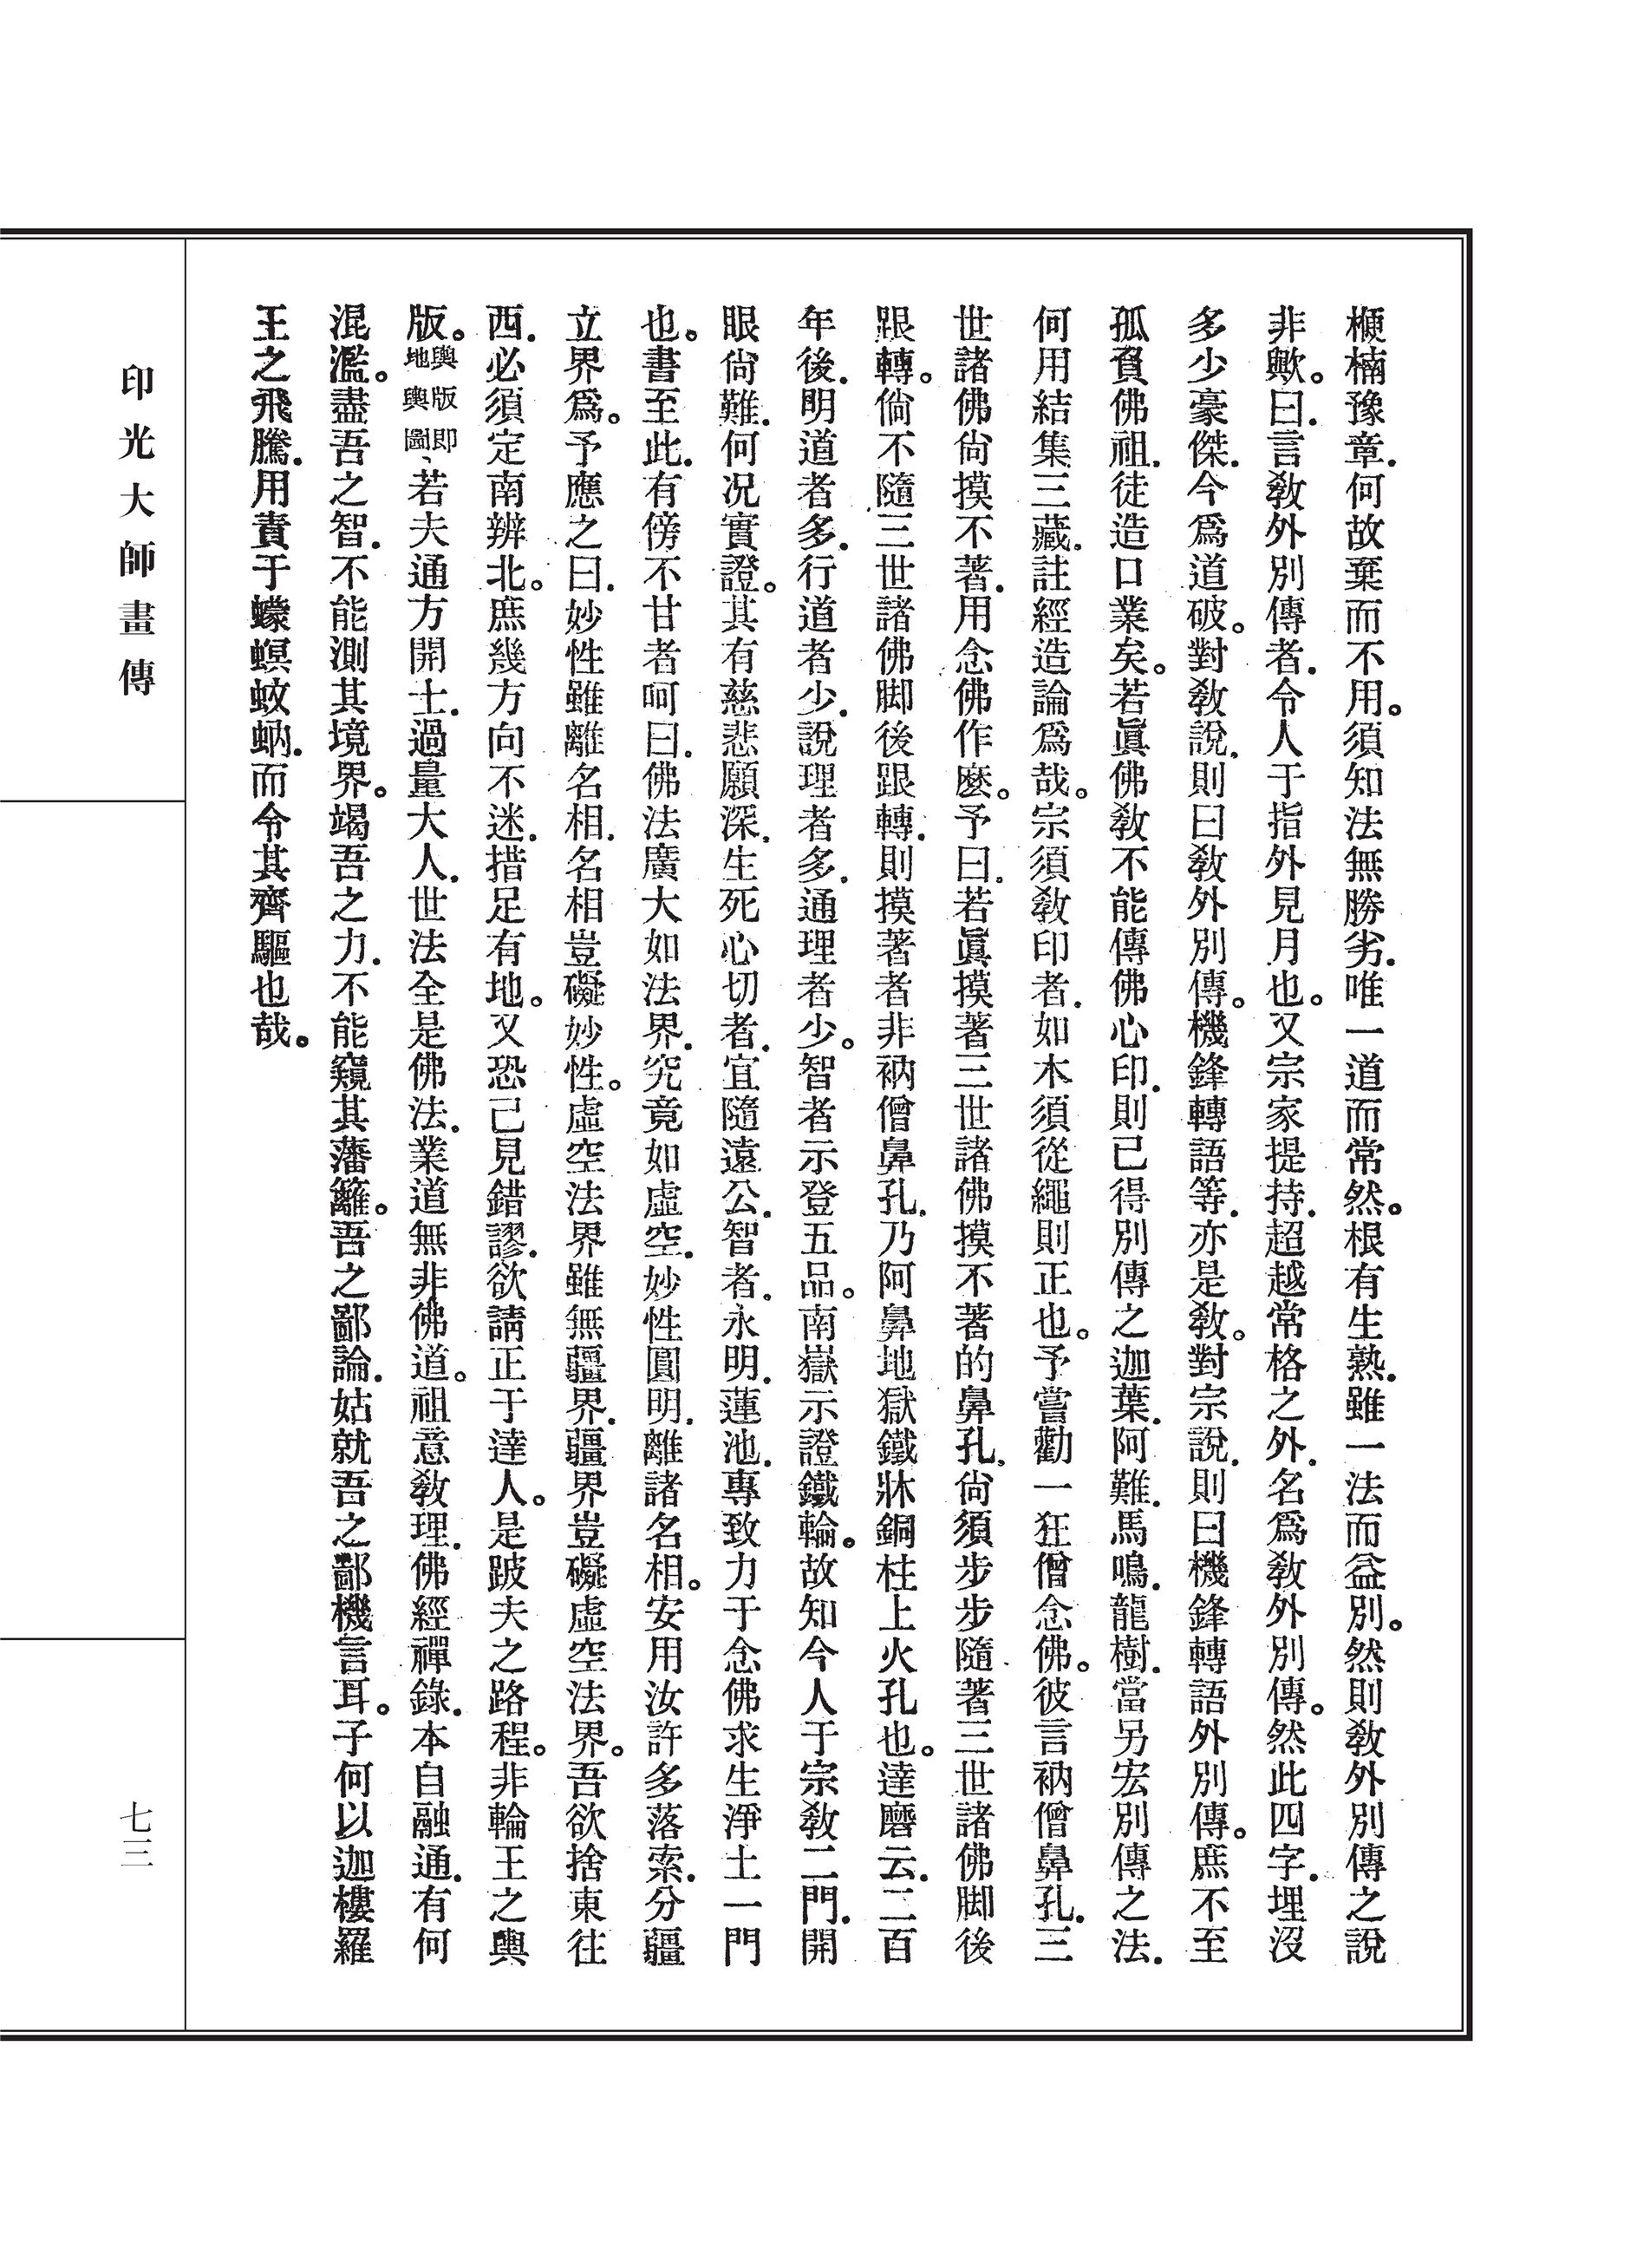 楩楠豫章.何故棄而不用。須知法無勝劣.唯一道而常然。根有生熟.雖一法而益別。然則敎外別傳之說
非歟。曰.言敎外別傳者.令人于指外見月也。又宗家提持.超越常格之外.名爲敎外別傳。然此四字.埋沒
多少豪傑.今爲道破。對敎說.則曰敎外別傳。機鋒轉語等.亦是敎。對宗說.則曰機鋒轉語外別傳。庶不至
孤負佛祖.徒造口業矣。若眞佛敎不能傳佛心印.則已得別傳之迦葉.阿難.馬鳴.龍樹.當另宏別傳之法.
何用結集三藏.註經造論爲哉。宗須敎印者.如木須從繩則正也。予嘗勸一狂僧念佛。彼言衲僧鼻孔.三
世諸佛尙摸不著.用念佛作麽。予曰.若眞摸著三世諸佛摸不著的鼻孔.尙須步步隨著三世諸佛脚後
跟轉。倘不隨三世諸佛脚後跟轉.則摸著者非衲僧鼻孔.乃阿鼻地獄鐵牀銅柱上火孔也。達磨云.二百
年後.明道者多.行道者少.說理者多.通理者少。智者示登五品。南嶽示證鐵輪。故知今人于宗敎二門.開
眼尙難.何况實證。其有慈悲願深.生死心切者.宜隨遠公.智者.永明.蓮池.專致力于念佛求生淨土一門
也。書至此.有傍不甘者呵曰.佛法廣大如法界.究竟如虛空.妙性圓明.離諸名相。安用汝許多落索.分疆
立界爲。予應之曰.妙性雖離名相.名相豈礙妙性。虛空法界雖無疆界.疆界豈礙虛空法界。吾欲捨東往
西.必須定南辨北。庶幾方向不迷.措足有地。又恐己見錯謬.欲請正于達人。是跛夫之路程。非輪王之輿
版。輿版即地輿圖、若夫通方開士.過量大人.世法全是佛法.業道無非佛道。祖意敎理.佛經禪錄.本自融通.有何
混濫。盡吾之智.不能測其境界。竭吾之力.不能窺其藩籬。吾之鄙論.姑就吾之鄙機言耳。子何以迦樓羅
王之飛騰.用責于蠓螟蚊蚋.而令其齊驅也哉。
印光大師畫傳
七三